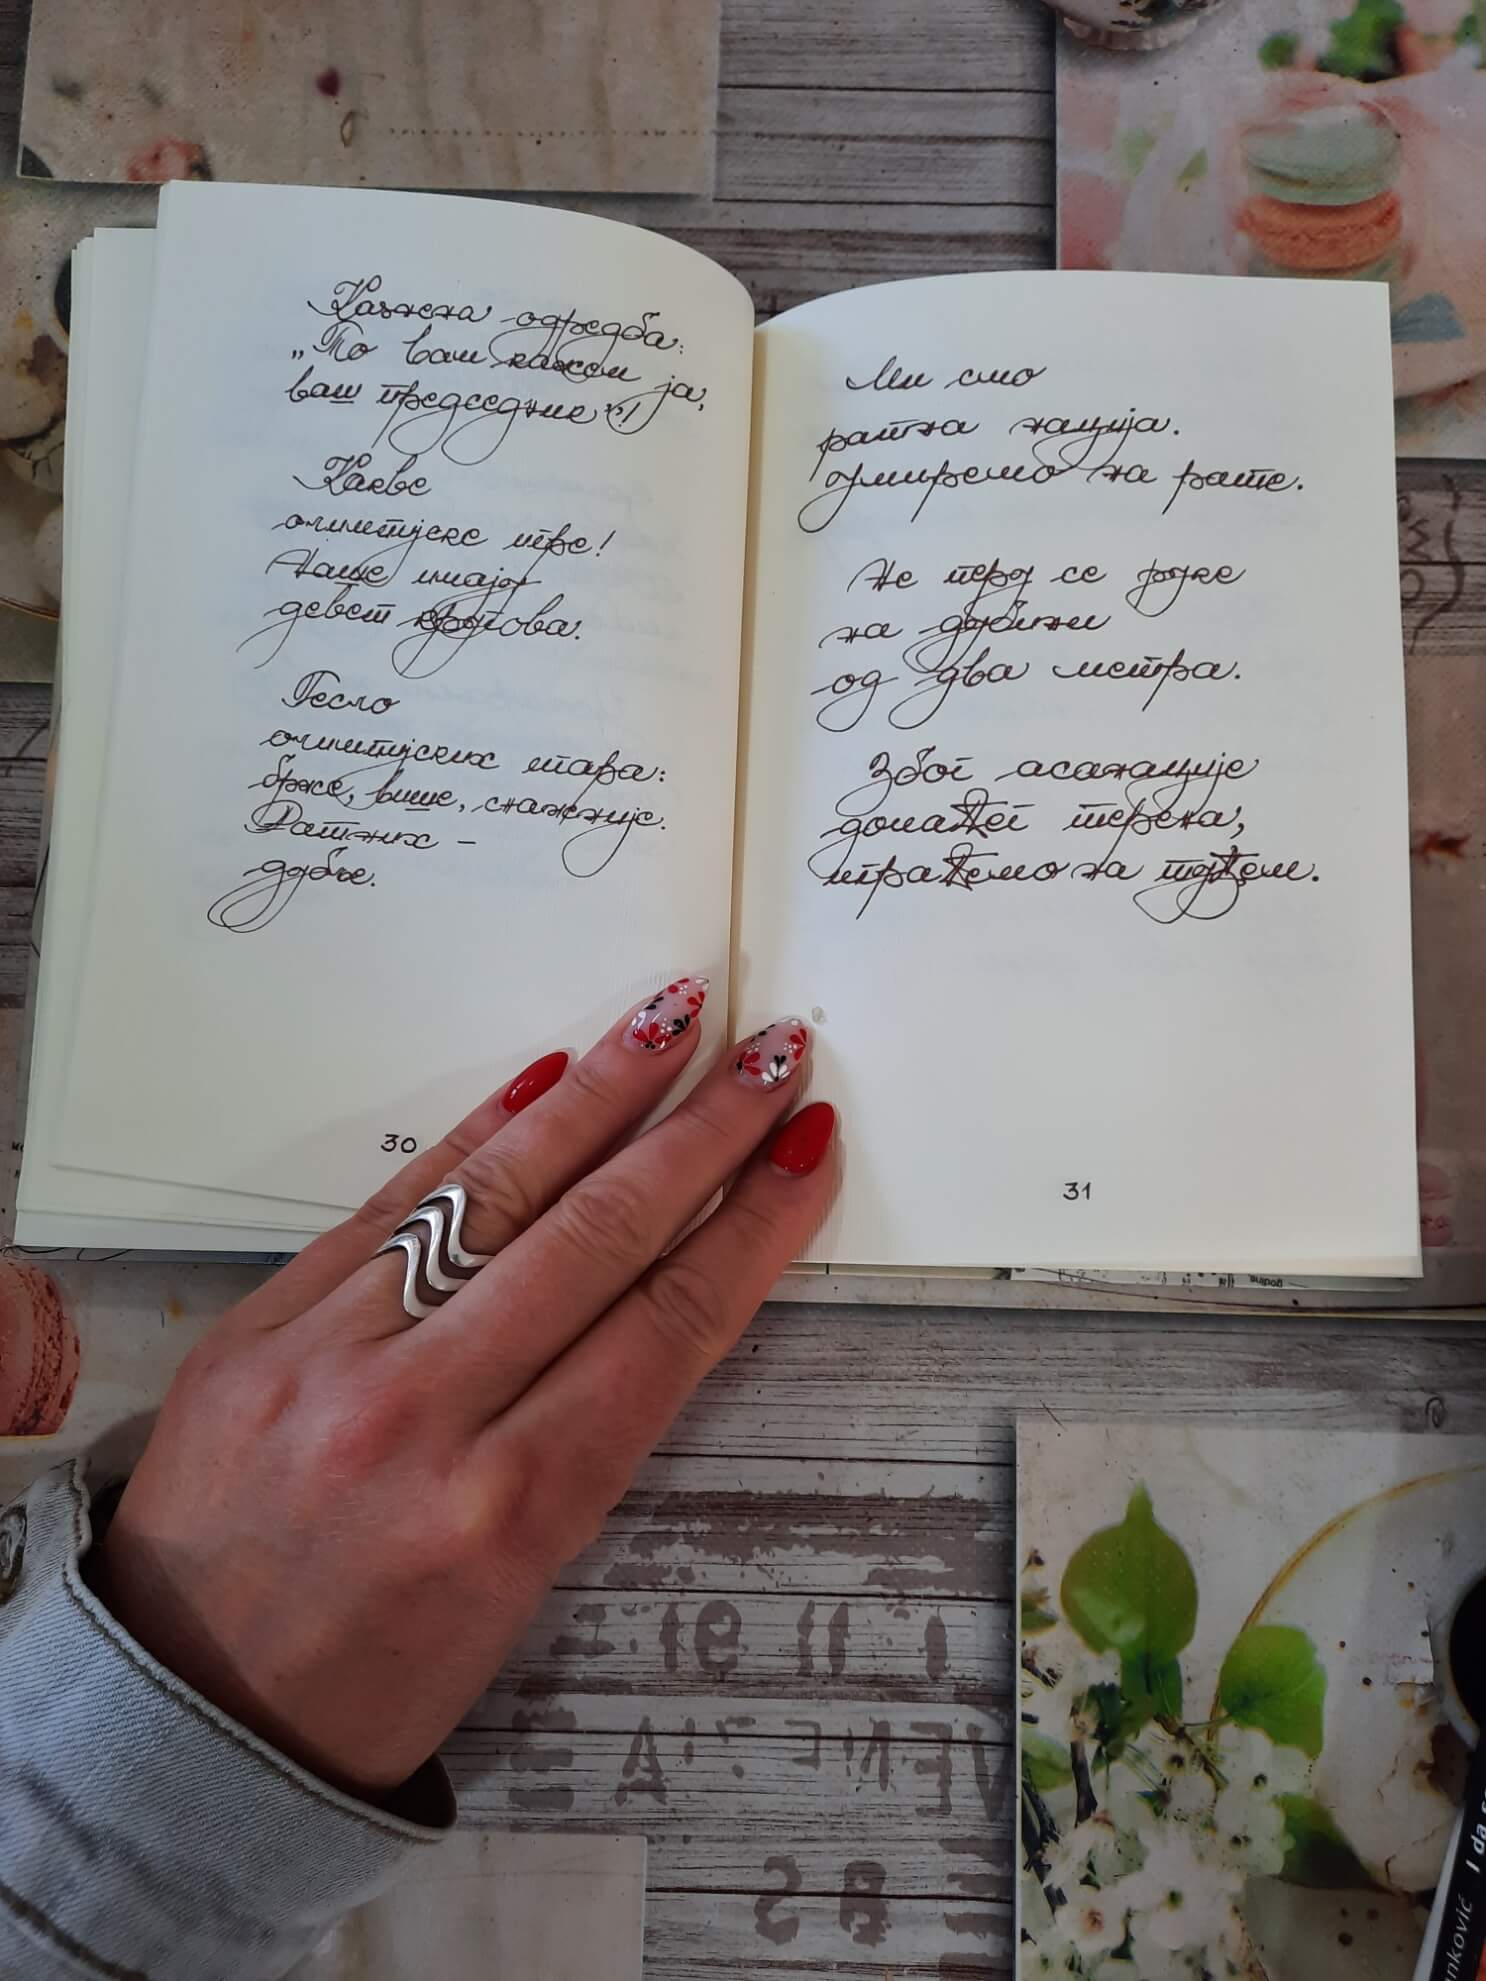 Казнена одредба:
„То вам кажем ја,
ваш председник“!
Какве
олимпијске игре!
Наше имају
девет кругова.
Гесло
олимпијских игара:
брже, више, снажније.
Ратних –
дубље.
30
Ми смо
ратна нација.
Умиремо на рате.
Не перу се руке
на дубини
од два метра.
Због асанације
домаћег терена,
играћемо на туђем.
31
godine.